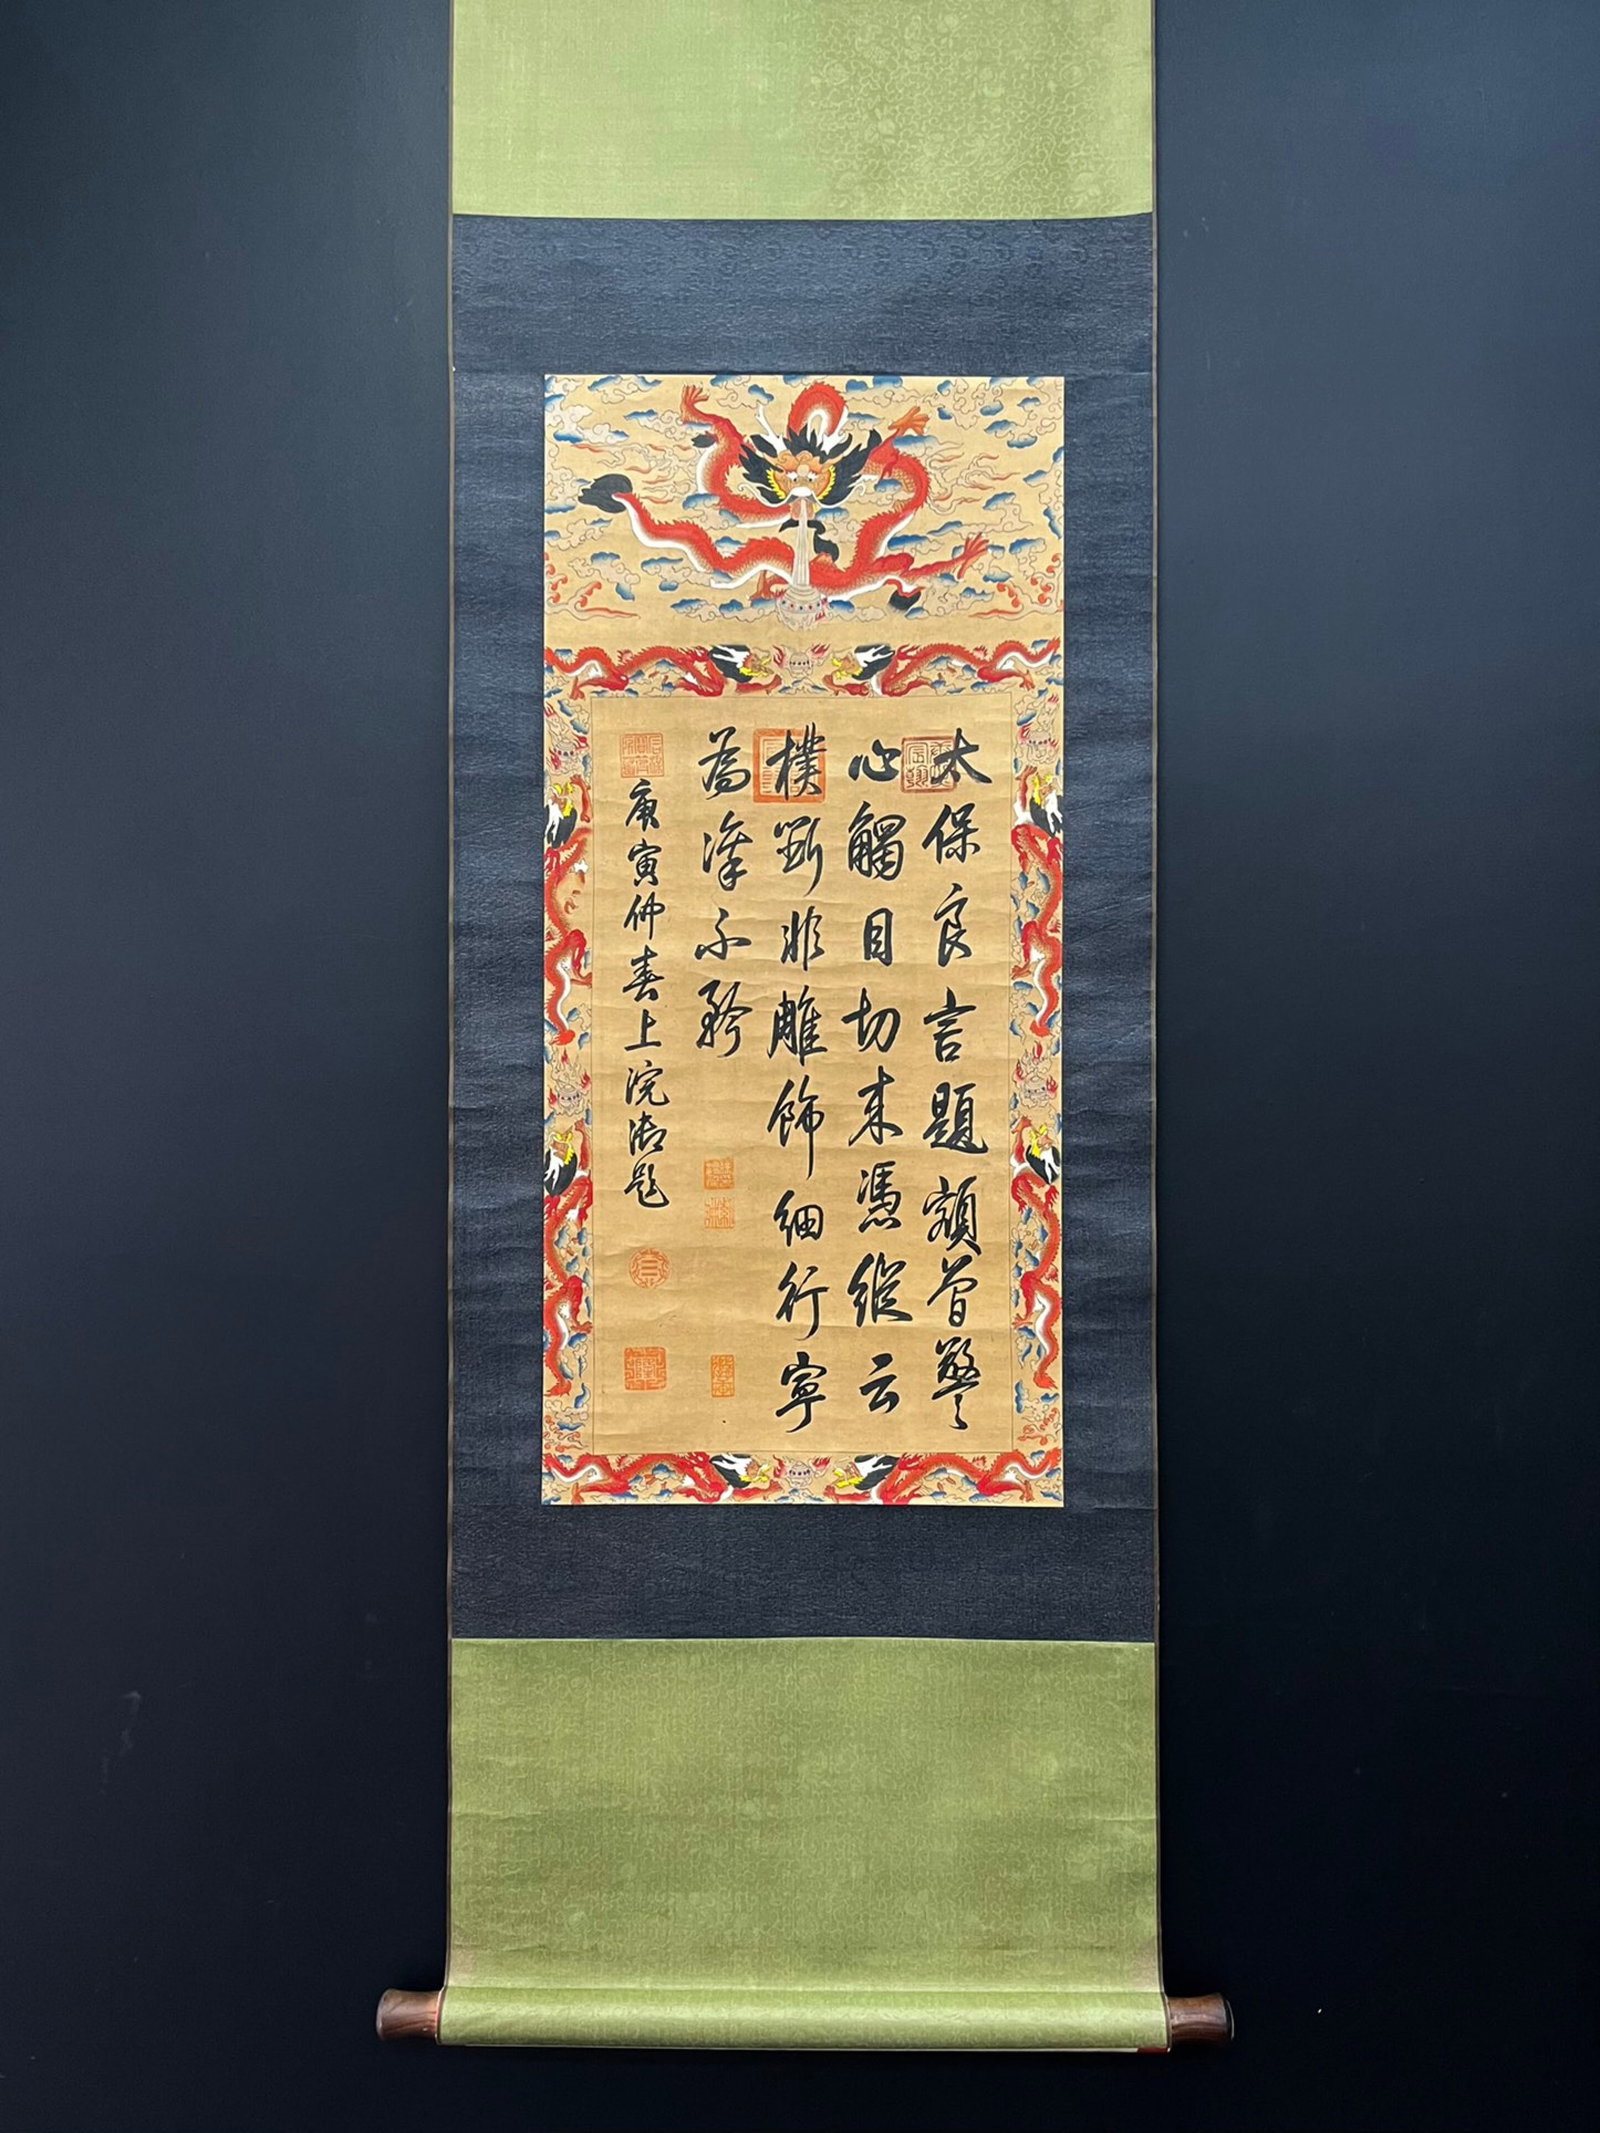 太保良言題額曾警
心觸目切来憑縱云
樸斵非雕飾細行寧
為不矜
庚寅仲春上浣御題